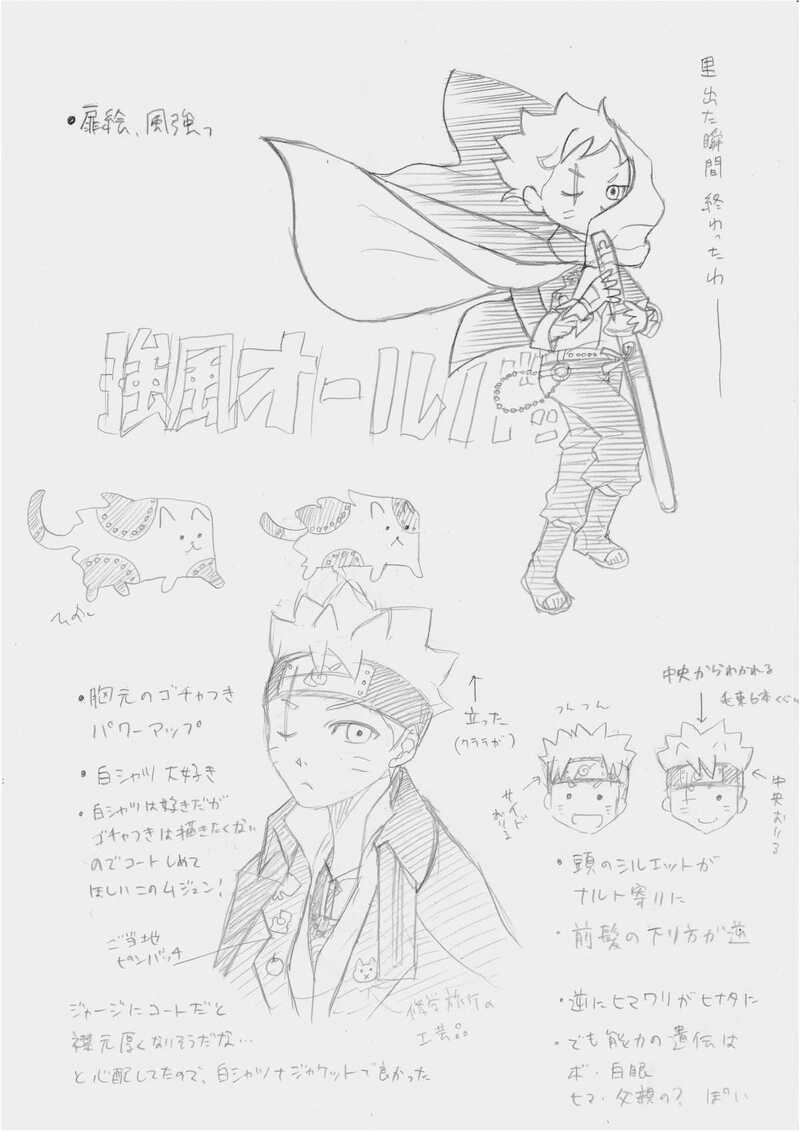 ・扉絵、風強っ
里出た瞬間 終わったわ――
強風オールバック
・胸元のゴチャつき
パワーアップ
・白シャツ大好き
・白シャツは好きだが
ゴチャつきは描きたくない
のでコートしめて
ほしいこのムジュン!
ご当地
ピンバッチ
↑
立った
(クララが)
修学旅行の
工芸品
ジャージにコートだと
襟元厚くなりそうだな…
と心配してたので、白シャツ+ジャケットで良かった
中央からわかれる
毛束6本くらい
つんつん
サイド
おりる
中央おりる
・頭のシルエットが
ナルト寄りに
・前髪の下り方が逆
・逆にヒマワリがヒナタに
・でも能力の遺伝は
ボ・白眼
ヒマ・父親の? ぽい